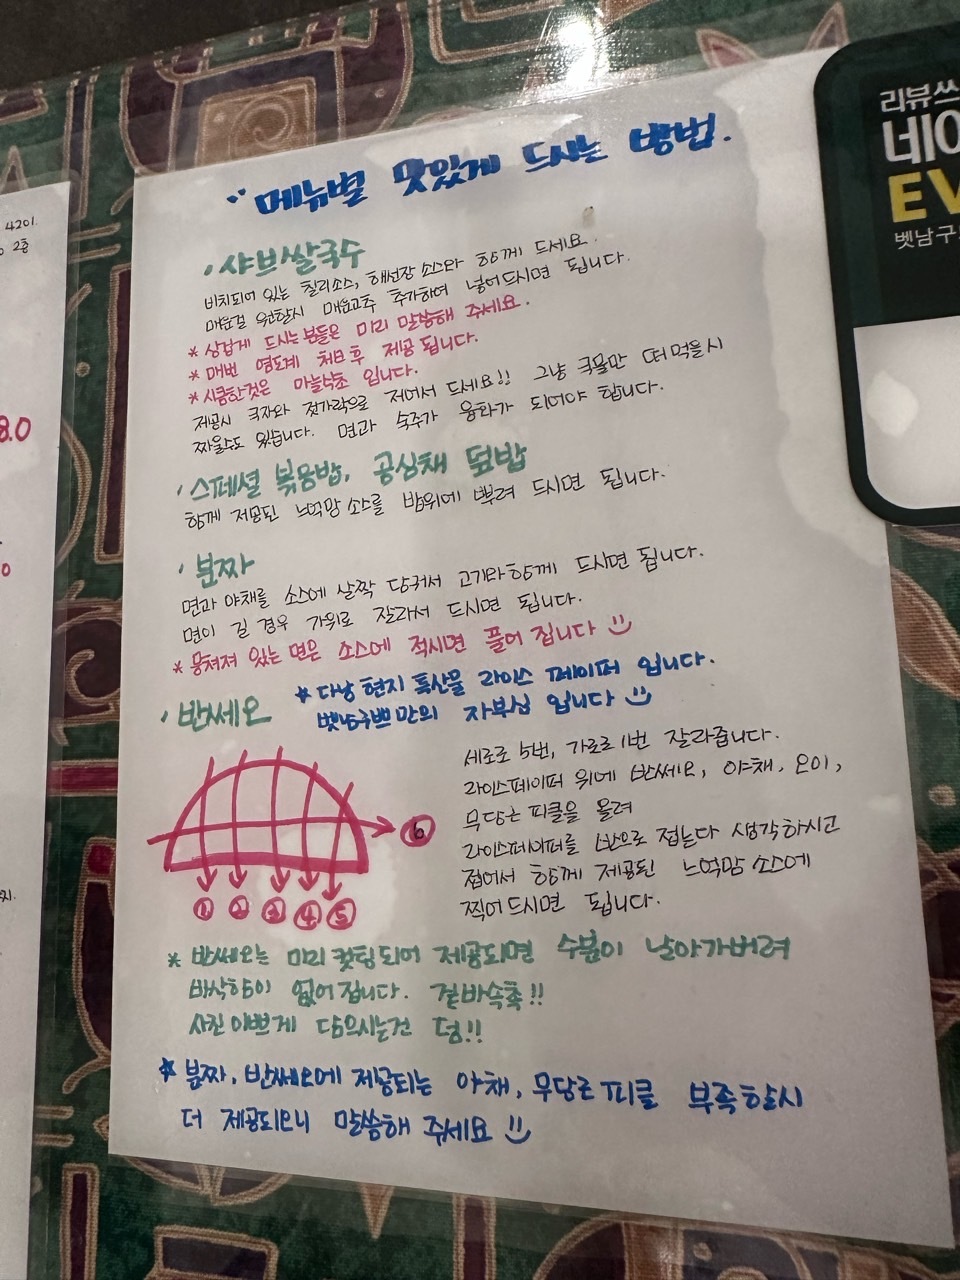 메뉴별 맛있게 드시는 방법.
· 샤브쌀국수
비치되어 있는 칠리소스, 해선장 소스와 함께 드세요.
매운걸 원할시 매운고추 추가하여 넣어드시면 됩니다.
* 싱겁게 드시는 분들은 미리 말씀해 주세요.
* 매번 염도계 체크 후 제공 됩니다.
* 시큼한것은 마늘식초 입니다.
제공시 국자와 젓가락으로 저어서 드세요!! 그냥 국물만 떠먹을시
짜울수도 있습니다. 면과 숙주가 융화가 되어야 합니다.
· 스페셜 볶음밥, 공심채 덮밥
함께 제공된 느억맘 소스를 밥위에 뿌려 드시면 됩니다.
· 분짜
면과 야채를 소스에 살짝 담궈서 고기와함께 드시면 됩니다.
면이 길 경우 가위로 잘라서 드시면 됩니다.
* 뭉쳐져 있는 면은 소스에 적시면 풀어 집니다
· 반쎄오
* 다낭 현지 특산물 라이스 페이퍼 입니다.
벳남구르만의 자부심 입니다
세로로 5번, 가로로 1번 잘라줍니다.
라이스페이퍼 위에 반쎄오, 야채, 오이,
무당근 피클을 올려
라이스페이퍼를 반으로 접는다 생각하시고
접어서 함께 제공된 느억맘 소스에
찍어 드시면 됩니다.
① ② ③ ④ ⑤
⑥
* 반쎄오는 미리 컷팅되어 제공되면 수분이 날아가버려
바삭함이 없어집니다. 겉바속촉!!
사진 이쁘게 담으시는건 덤!!
* 분짜, 반쎄오에 제공되는 야채, 무당근 피클 부족할시
더 제공되오니 말씀해 주세요
리뷰쓰
네이
EV
벳남구
4201.
2층
8.0